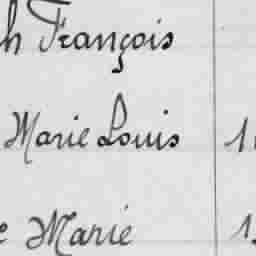 h François
Marie Louis 1
e Marie 1